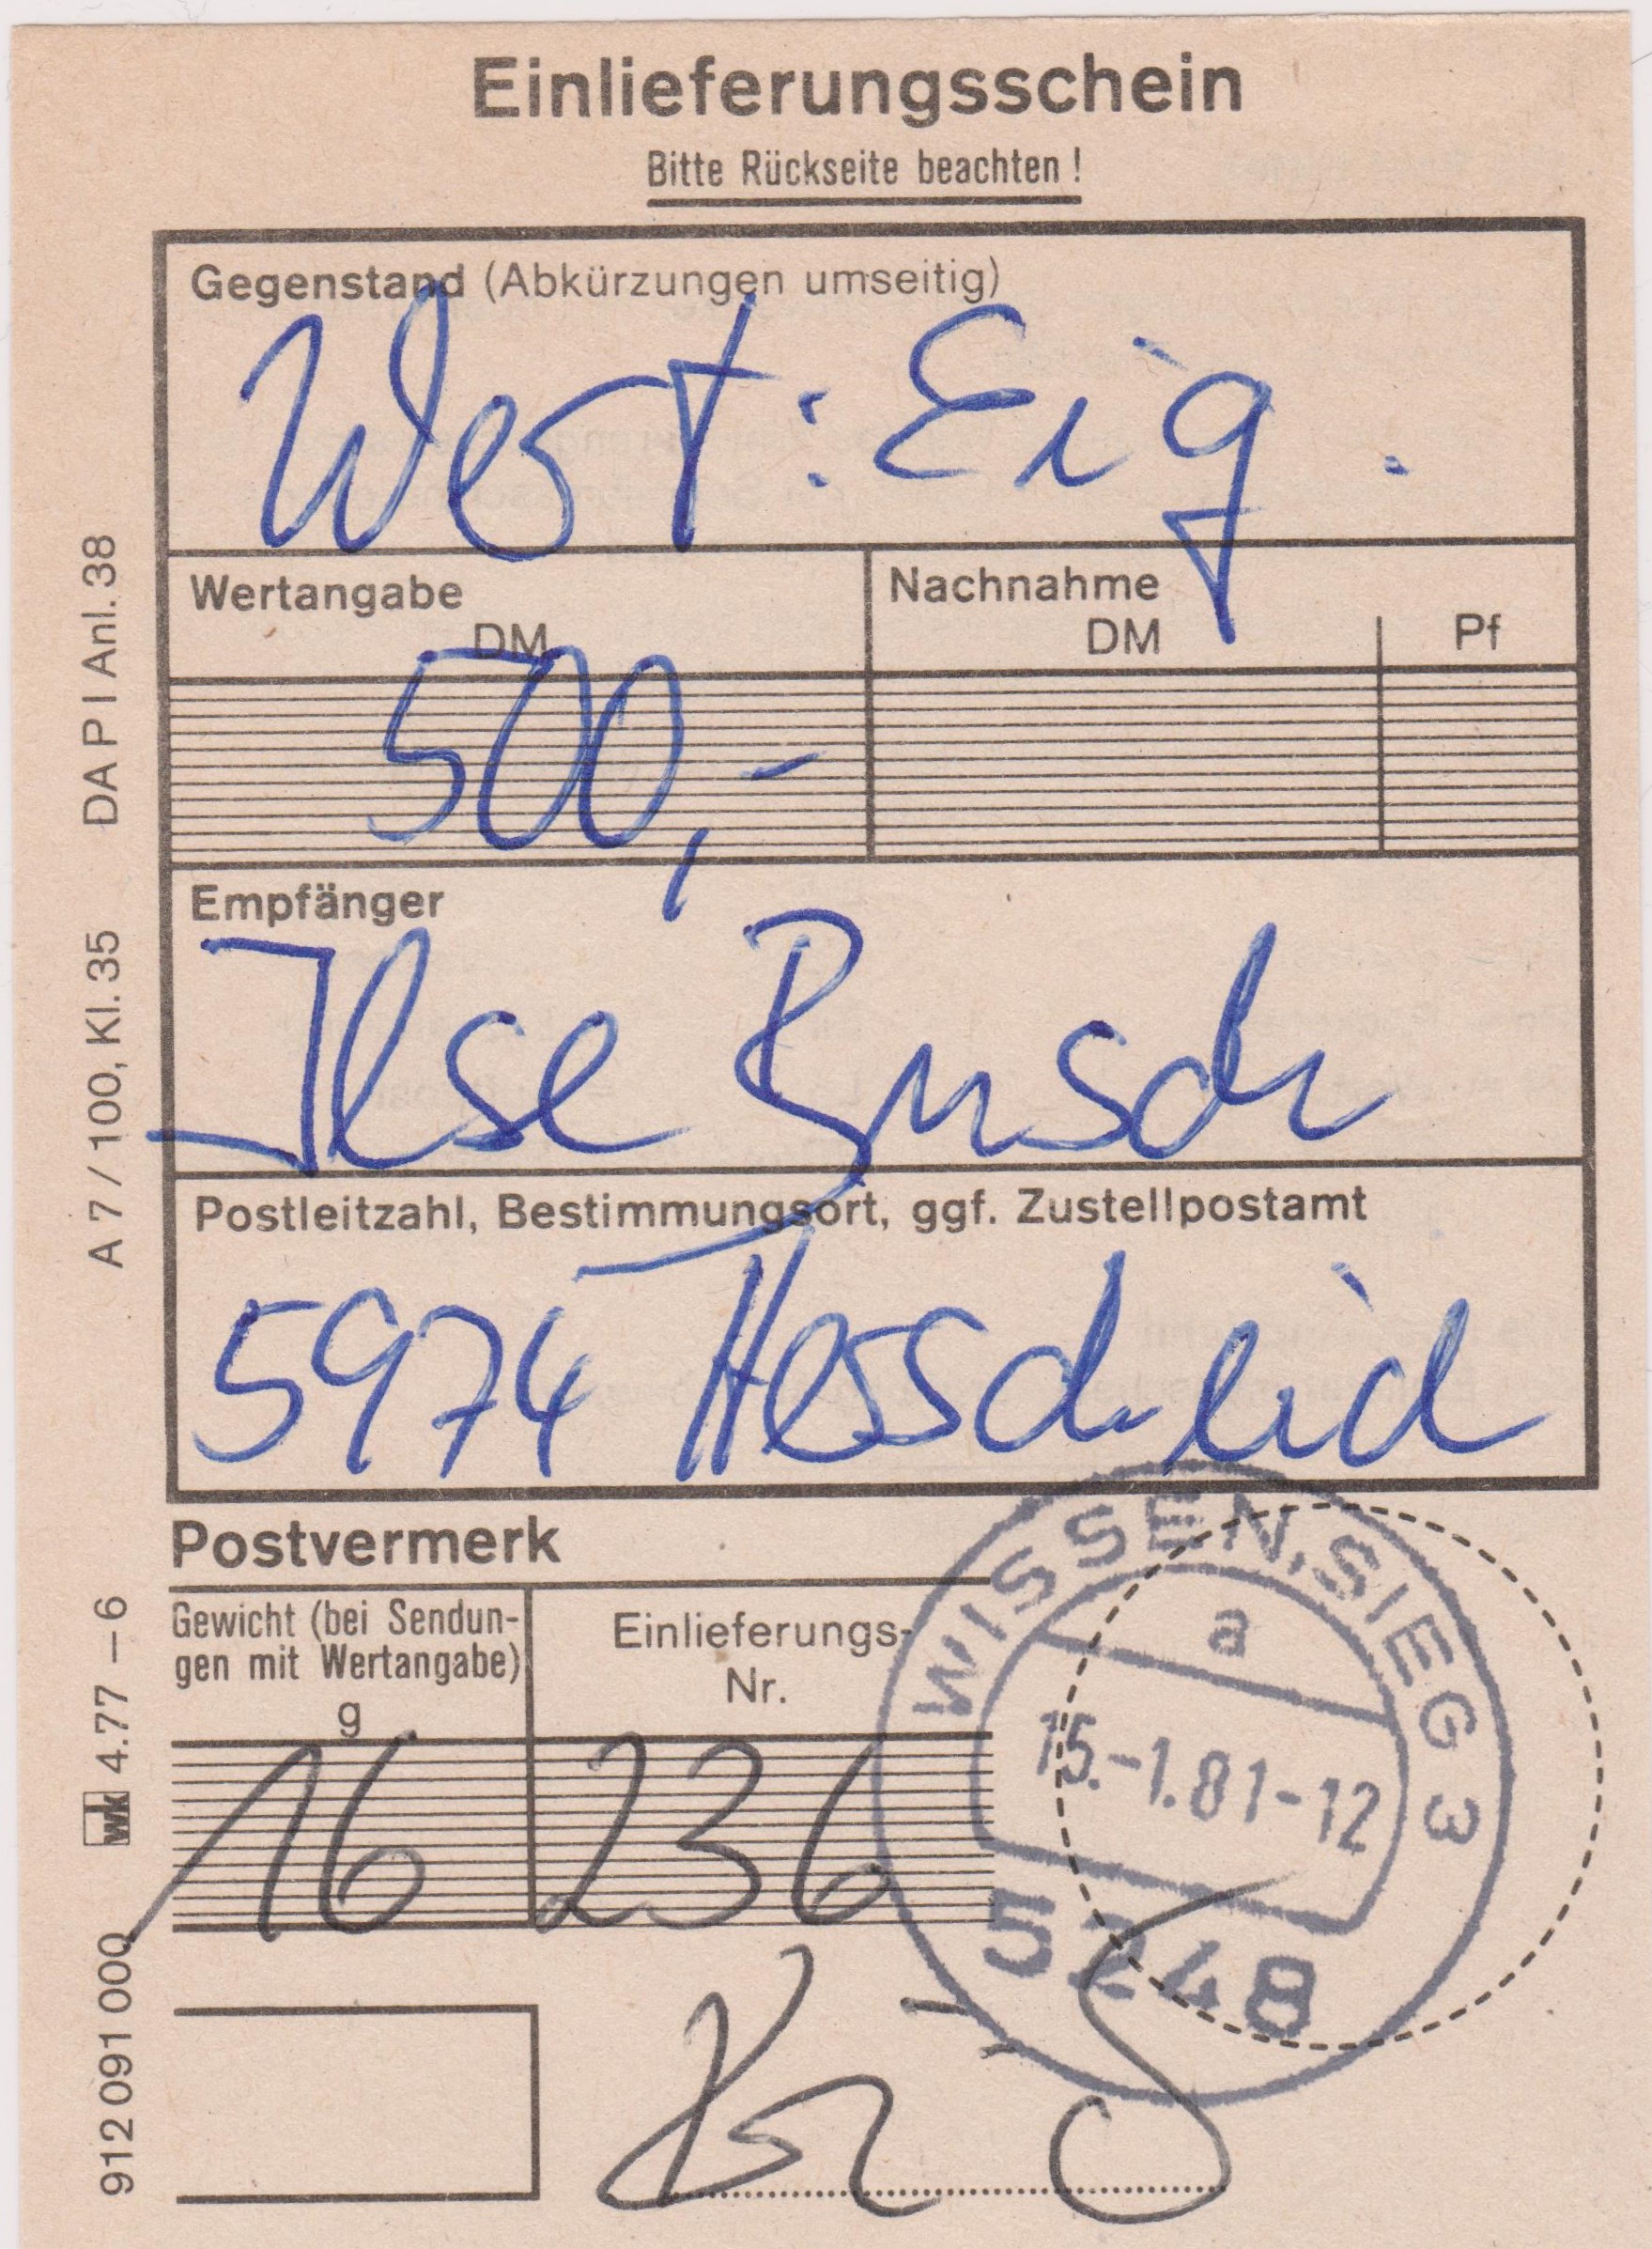 Einlieferungsschein
Bitte Rückseite beachten !
Gegenstand (Abkürzungen umseitig)
Wert: Eig.
Wertangabe
DM
Nachnahme
DM
Pf
500,-
Empfänger
Ilse Busch
Postleitzahl, Bestimmungsort, ggf. Zustellpostamt
5974 Hesscheid
Postvermerk
Gewicht (bei Sendun-
gen mit Wertangabe)
g
Einlieferungs-
Nr.
16
236
WISSEN, SIEG 3
a
15.-1.81-12
5248
912 091 000 wk 4.77 – 6
A 7 / 100, Kl. 35 DA P I Anl. 38